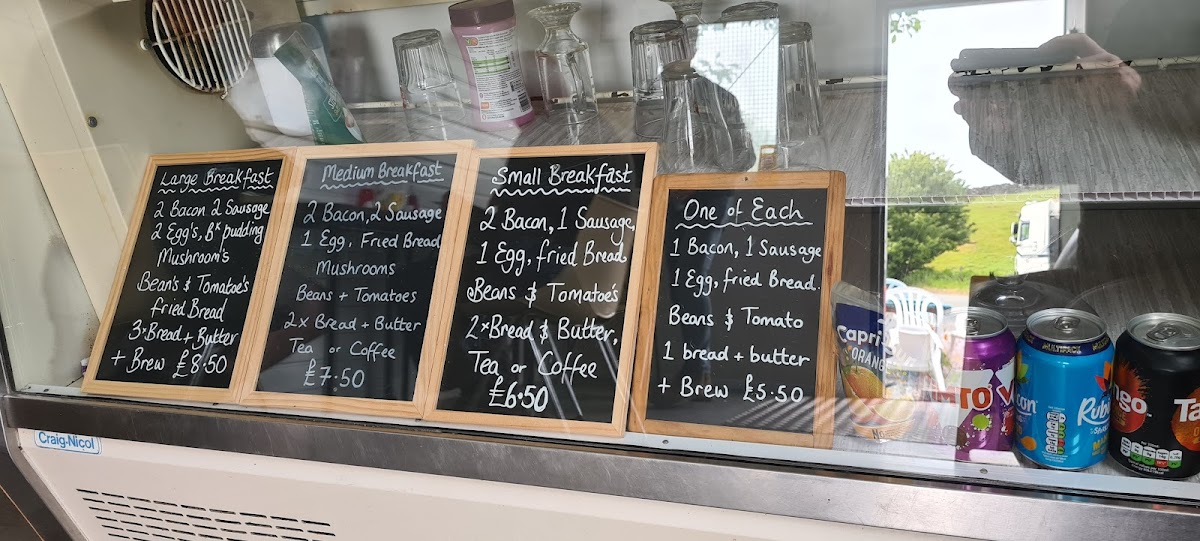 Large Breakfast
2 Bacon 2 Sausage
2 Egg's, Bk pudding
Mushroom's
Bean's & Tomatoe's
fried Bread
3xBread + Butter
+ Brew £8.50
Medium Breakfast
2 Bacon, 2 Sausage
1 Egg, Fried Bread
Mushrooms
Beans + Tomatoes
2x Bread + Butter
Tea or Coffee
£7.50
Small Breakfast
2 Bacon, 1 Sausage,
1 Egg, fried Bread
Beans & Tomatoe's
2xBread & Butter,
Tea or Coffee
£6.50
One of Each
1 Bacon, 1 Sausage
1 Egg, fried Bread.
Beans & Tomato
1 bread + butter
+ Brew £5.50
Capri
ORAN
Rub
ngo
Ta
Craig-Nicol